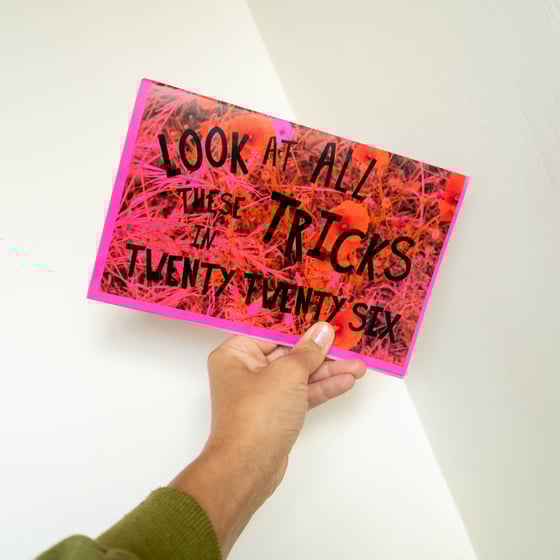 LOOK AT ALL
THESE TRICKS
IN
TWENTY TWENTY SIX